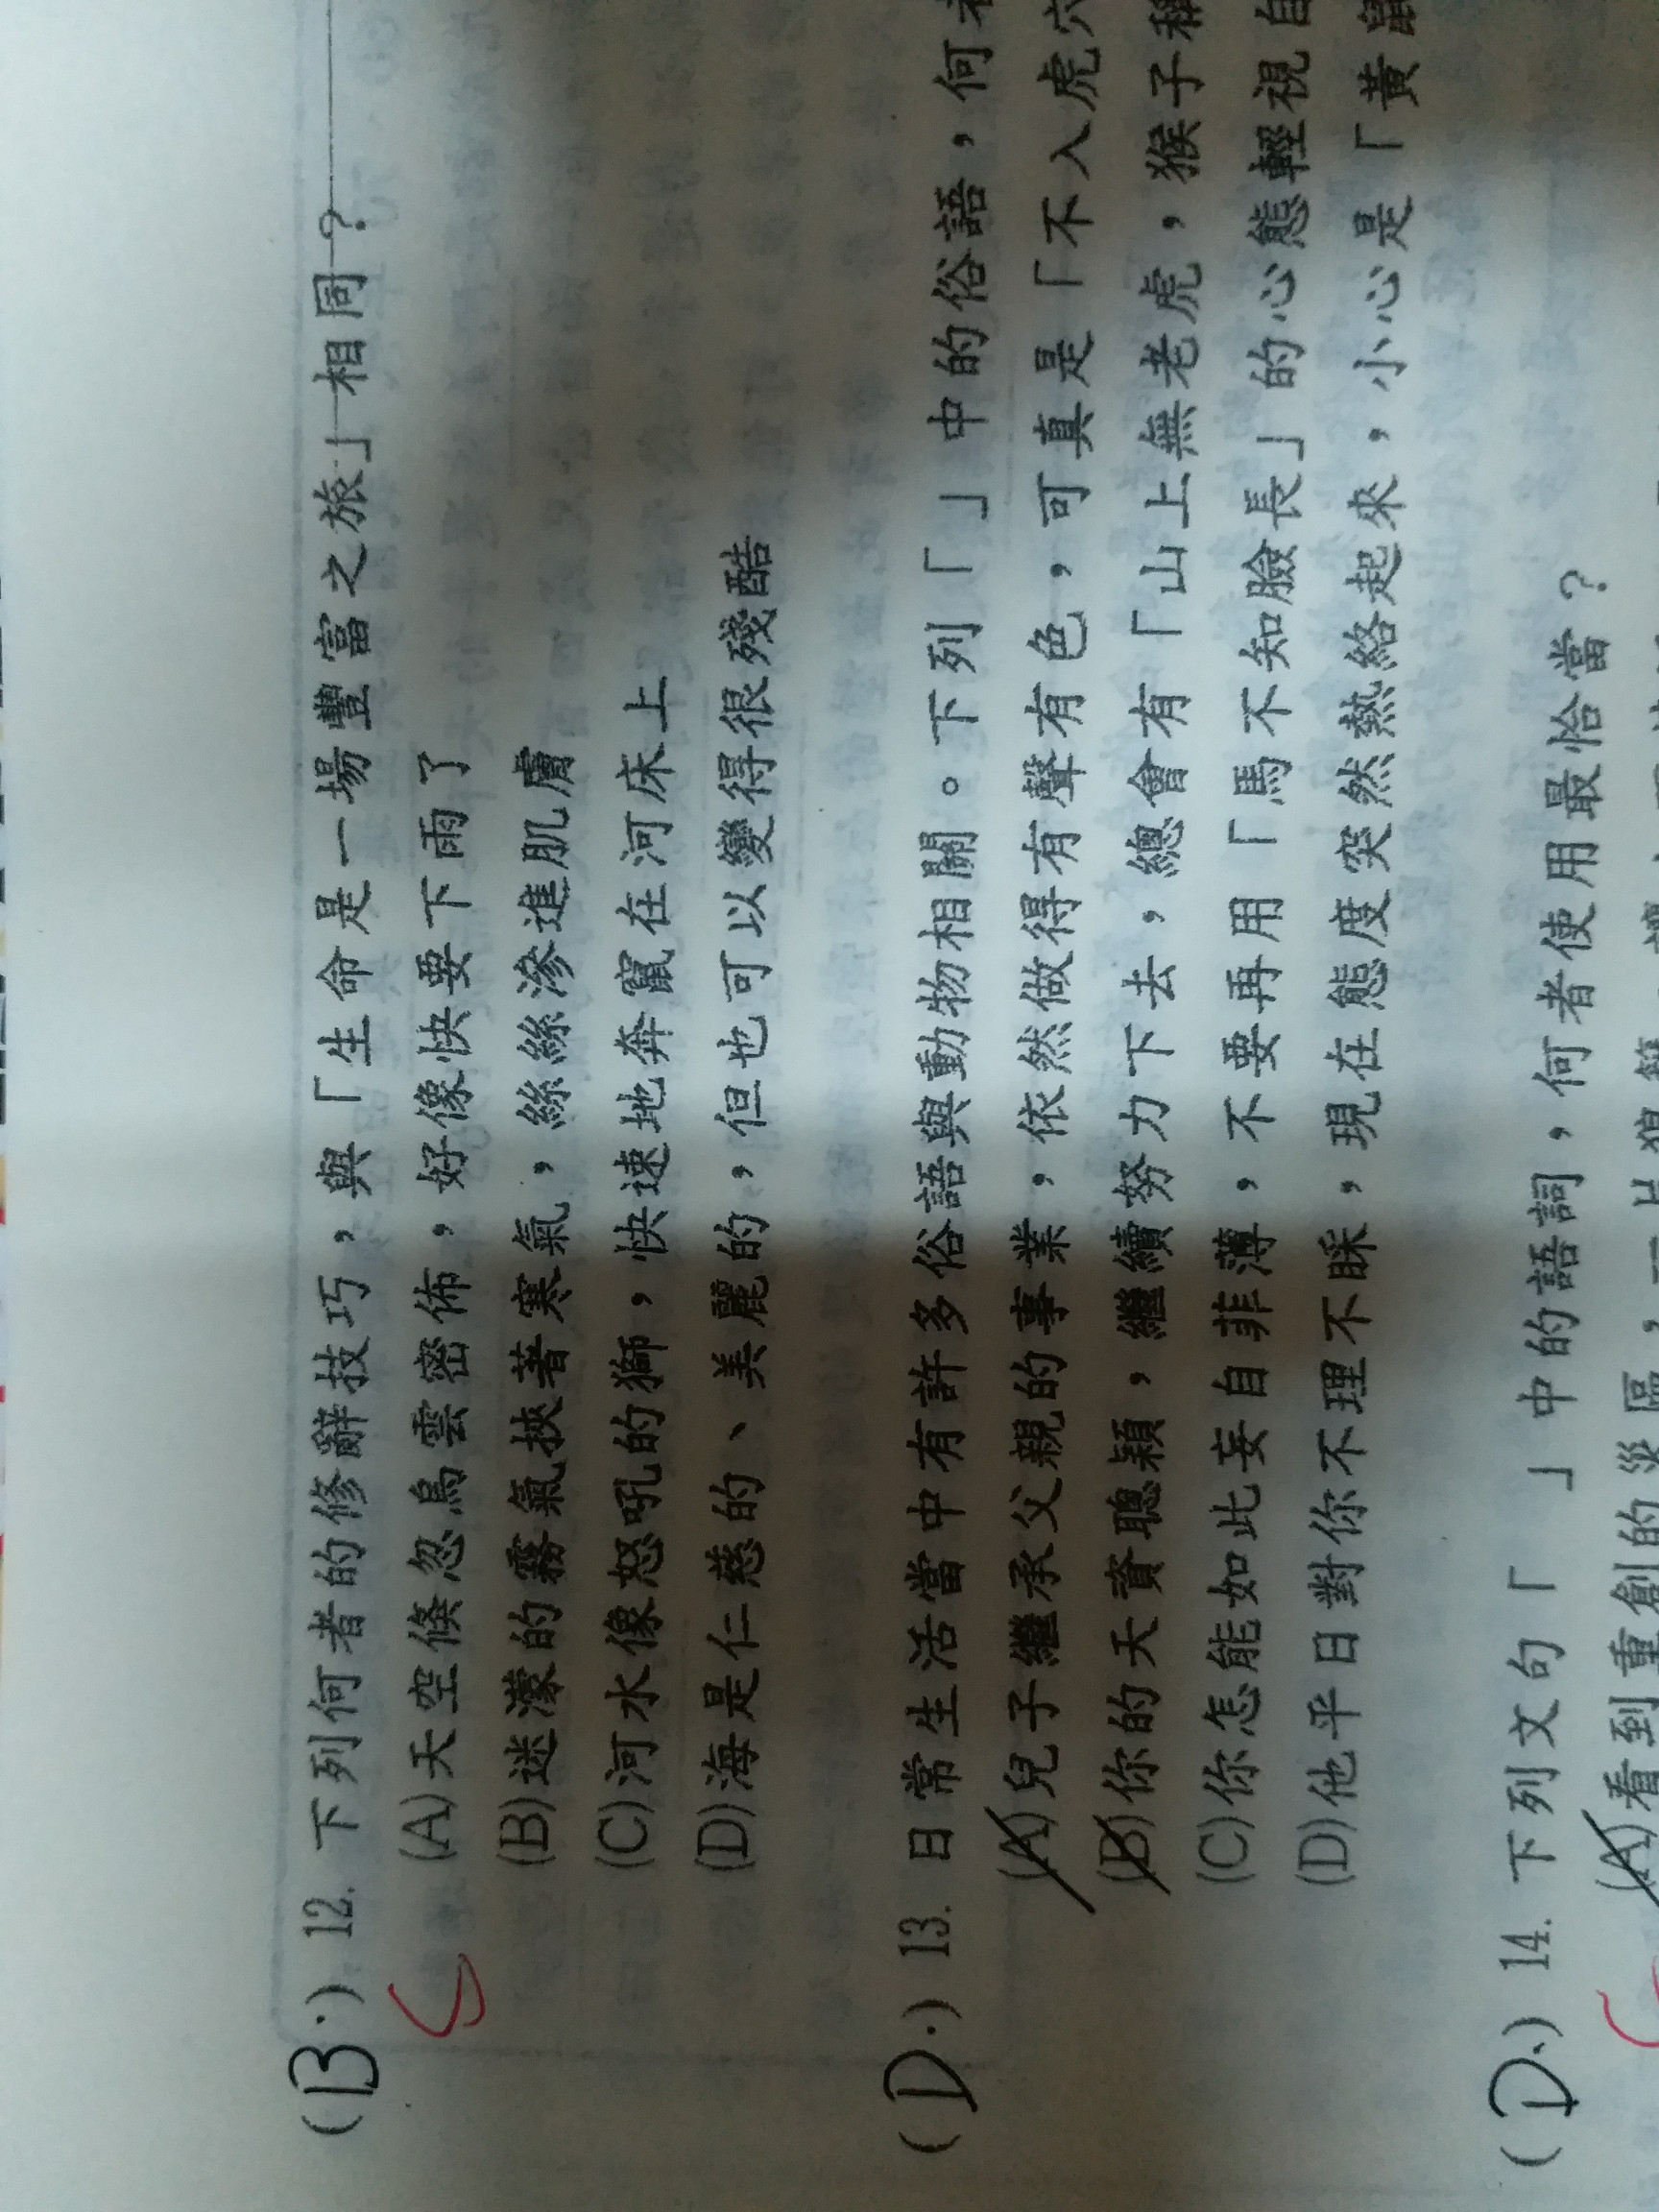 (B.) 12. 下列何者的修辭技巧，與「生命是一場豐富之旅」相同？
(A)天空倏忽烏雲密佈，好像快要下雨了
(B)迷濛的霧氣挾著寒氣，絲絲滲進肌膚
(C)河水像怒吼的獅，快速地奔竄在河床上
(D)海是仁慈的、美麗的，但也可以變得很殘酷
(D.) 13. 日常生活當中有許多俗語與動物相關。下列「 」中的俗語，何者
(A)兒子繼承父親的事業，依然做得有聲有色，可真是「不入虎穴
(B)你的天資聰穎，繼續努力下去，總會有「山上無老虎，猴子稱
(C)你怎能如此妄自菲薄，不要再用「馬不知臉長」的心態輕視自
(D)他平日對你不理不睬，現在態度突然熱絡起來，小心是「黃鼠
(D.) 14. 下列文句「 」中的語詞，何者使用最恰當？
(A)看到重創的災區，一片狼籍，讓